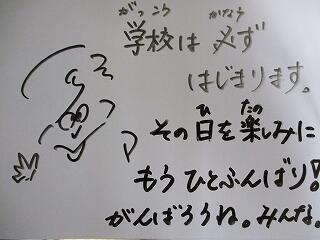 がっこう かなら
学校は 必ず
はじまります。
ひ たの
その日を楽しみに
もうひとふんばり!
がんばろうね。みんな。